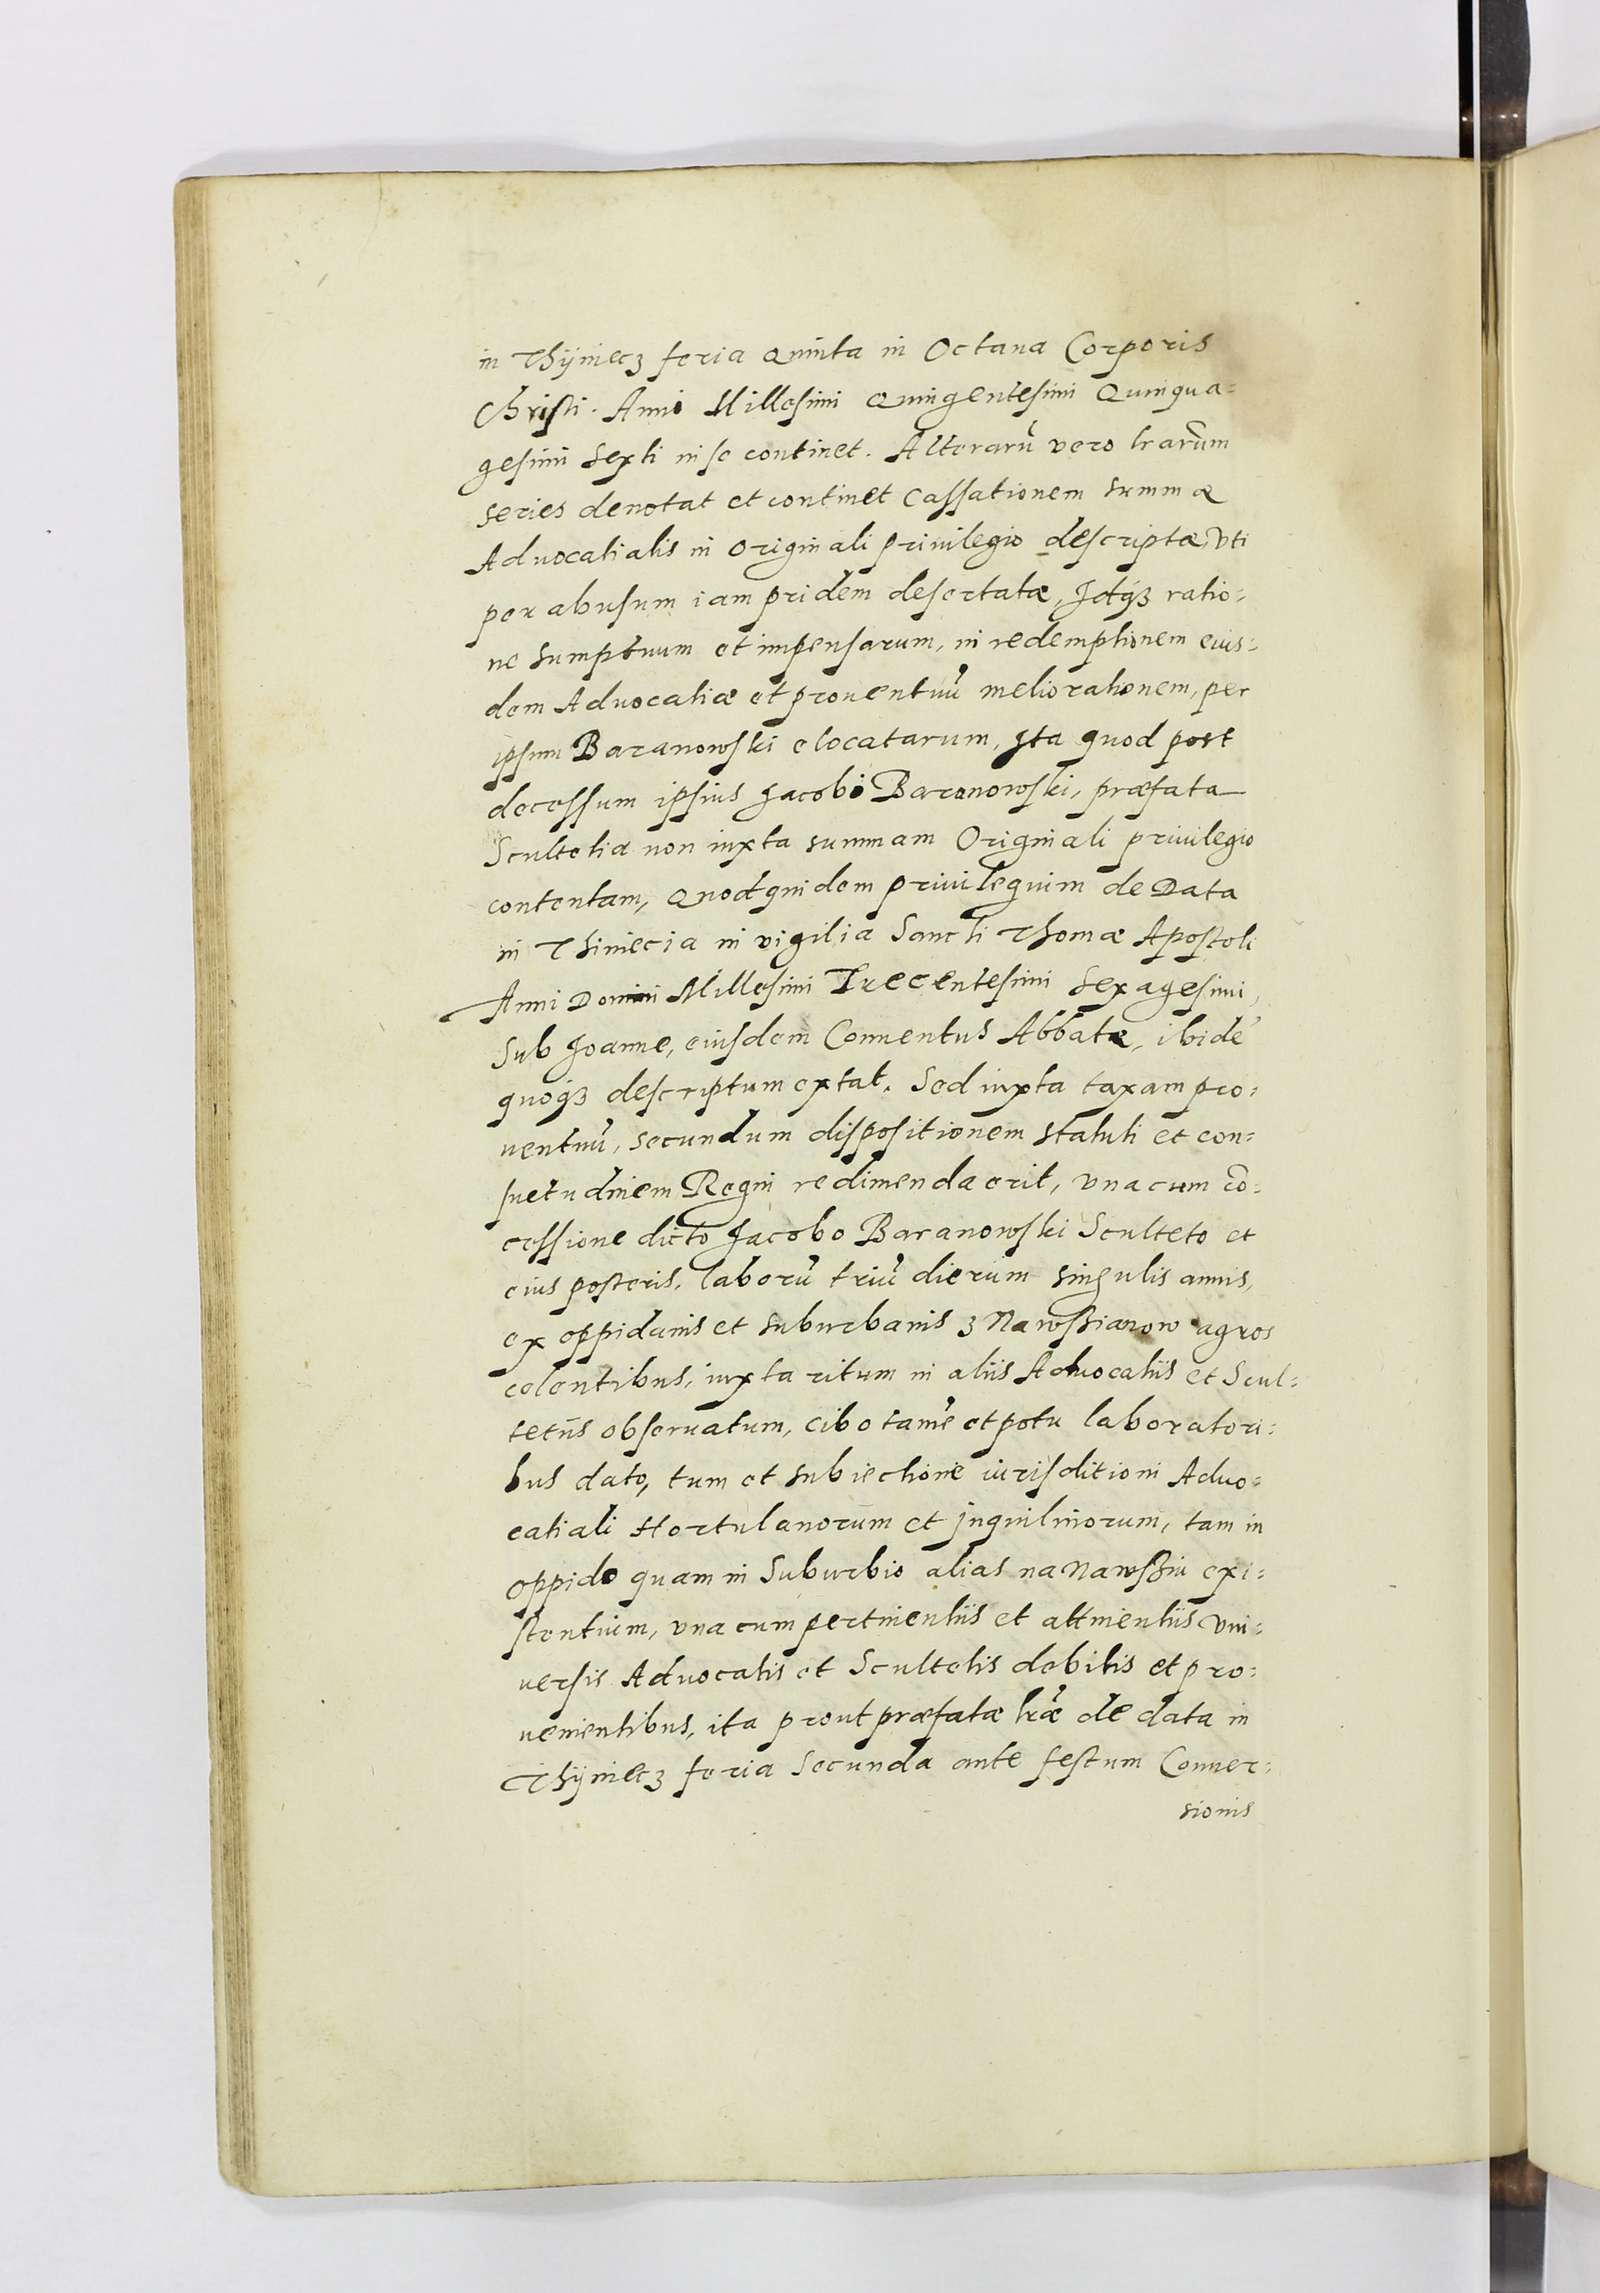 in Thÿniecz feria Quinta in Octaua Corporis
Christi. Anni Millesimi Quingentesimi Quinqua=
gesimi Sexti in se continet. Alterarũ vero lrarũm
series denotat et continet Cassationem summæ
Aduocatialis in Originali priuilegio descriptæ, vti
per abusum iam pridem desertatæ, Idq́ꝫ ratio=
ne sumptuum et impensarum, in redemptionem eius=
dem Aduocatiæ et prouentuũ meliorationem, per
ipsum Baranowski elocatarum, Ita quod post
decessum ipsius Jacobi Baranowski, præfata
Scultetia non iuxta summam Originali priuilegio
contentam, Quodquidem priuilegium de Data
in Thiniecia in vigilia Sancti Thomæ Apostoli
Anni Domini Millesimi Trecentesimi Sexagesimi,
Sub Joanne, eiusdem Conuentus Abbatæ, ibidẽ
quoq́ꝫ descriptum extat. Sed iuxta taxam pro=
uentuũ, secundum dispositionem statuti et con=
suetudinem Regni redimenda erit, vna cum cõ=
cessione dicto Jacobo Baranowski Sculteto et
eius posteris, laborũ triũ dierum singulis annis,
ex oppidanis et suburbanis z Nawssianow agros
colentibus, iuxta ritum in aliis Aduocatiis et Scul=
tetiis obseruatum, cibo tamẽ et potu laboratori=
bus dato, tum et subiectione iurisditioni Aduo=
catiali Hortulanorum et Inquilinorum, tam in
oppido quam in Suburbio alias na Nawssiu exi=
stentium, vna cum pertinentiis et attinentiis vni=
uersis Aduocatis et Scultetis debitis et pro=
uenientibus, ita prout præfatæ lræ̃ de data in
Thÿniecz feria Secunda ante festum Conuer=
sionis